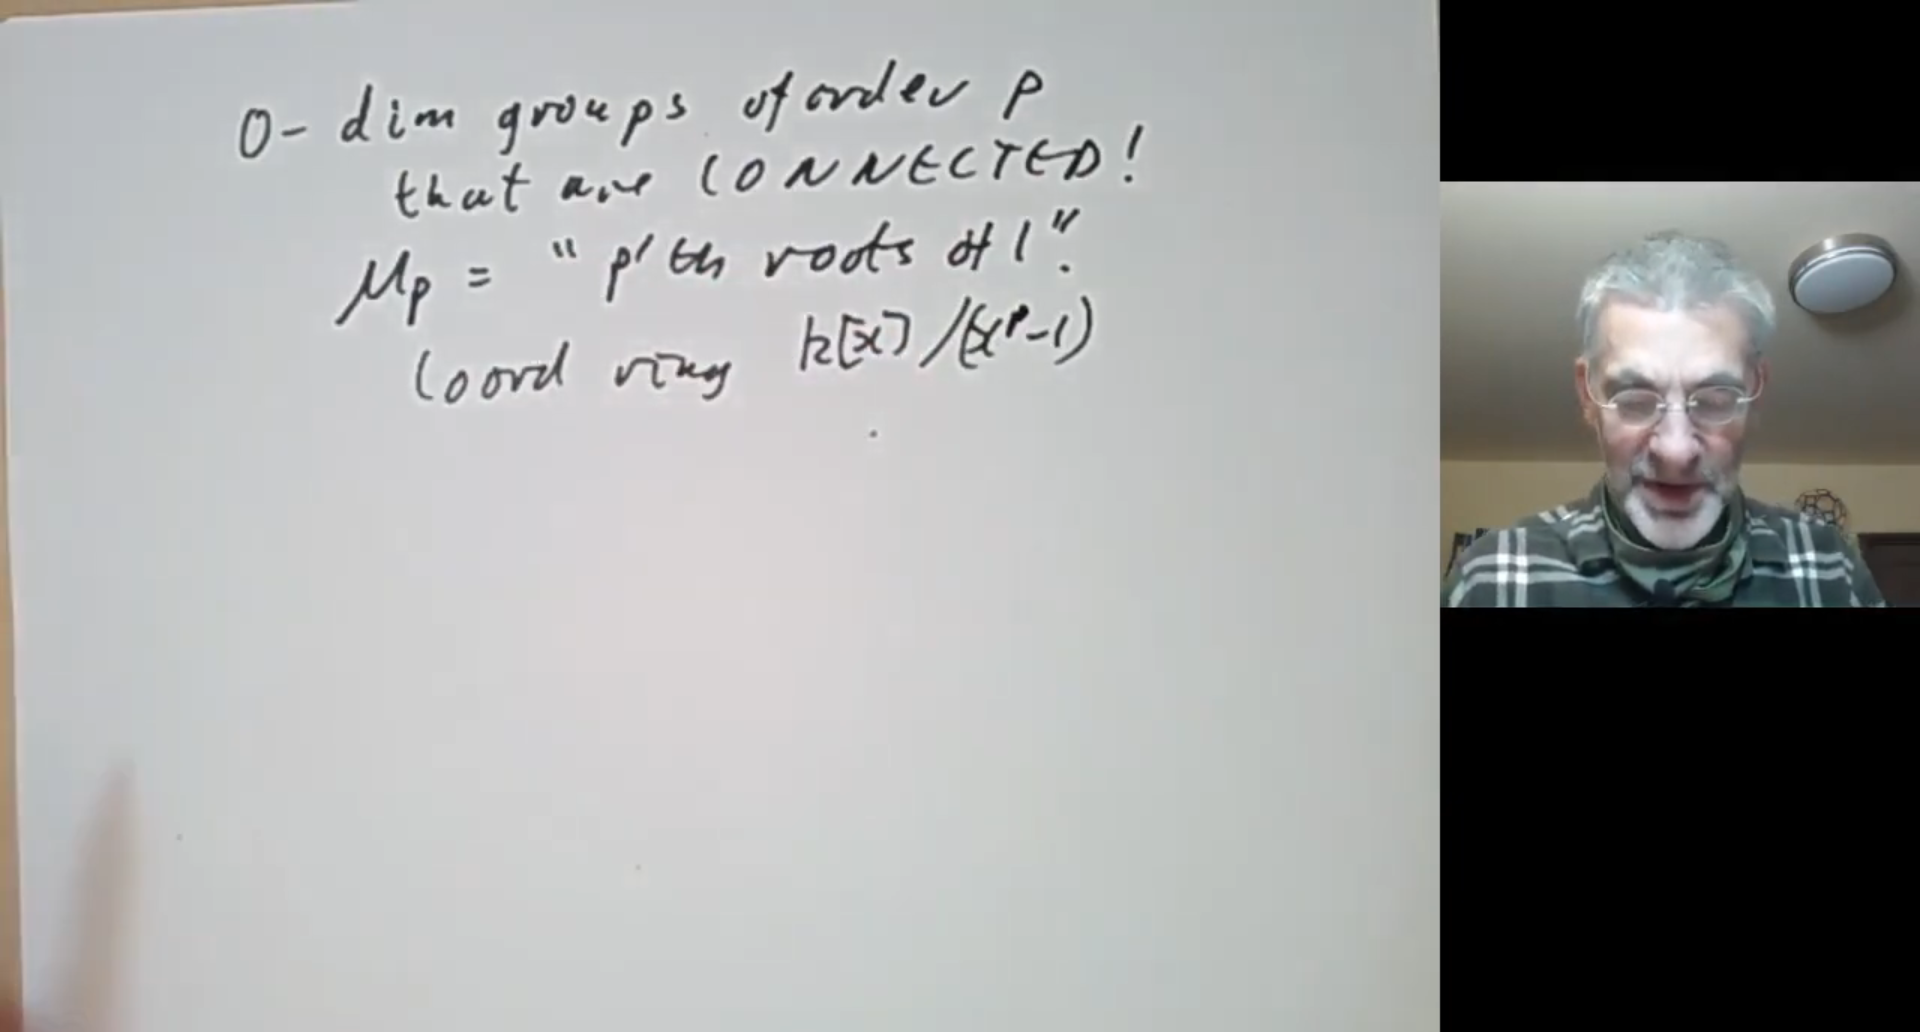 0-dim groups of order p
that are CONNECTED!
μp = "p'th roots of 1".
Coord ring k[x]/(x^p-1)